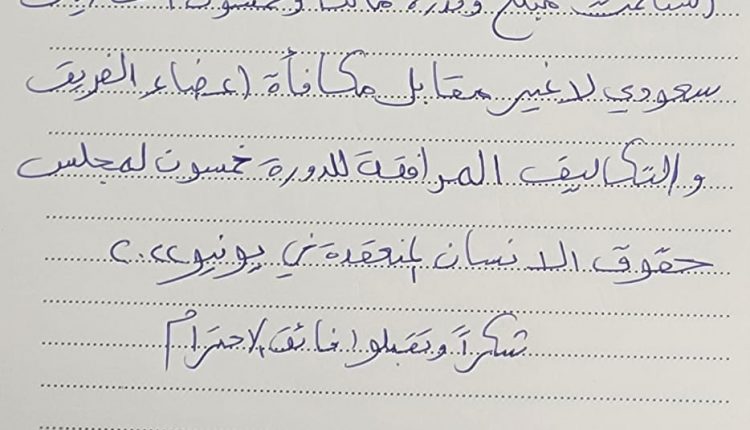 مبلغ وقدره
سعودي لا غير مقابل مكافأة اعضاء الفريق
والتكاليف المرافقة للدورة خمسون لمجلس
حقوق الانسان المنعقدة في يونيو ٢٠٢٢
شكراً وتقبلوا فائق الاحترام